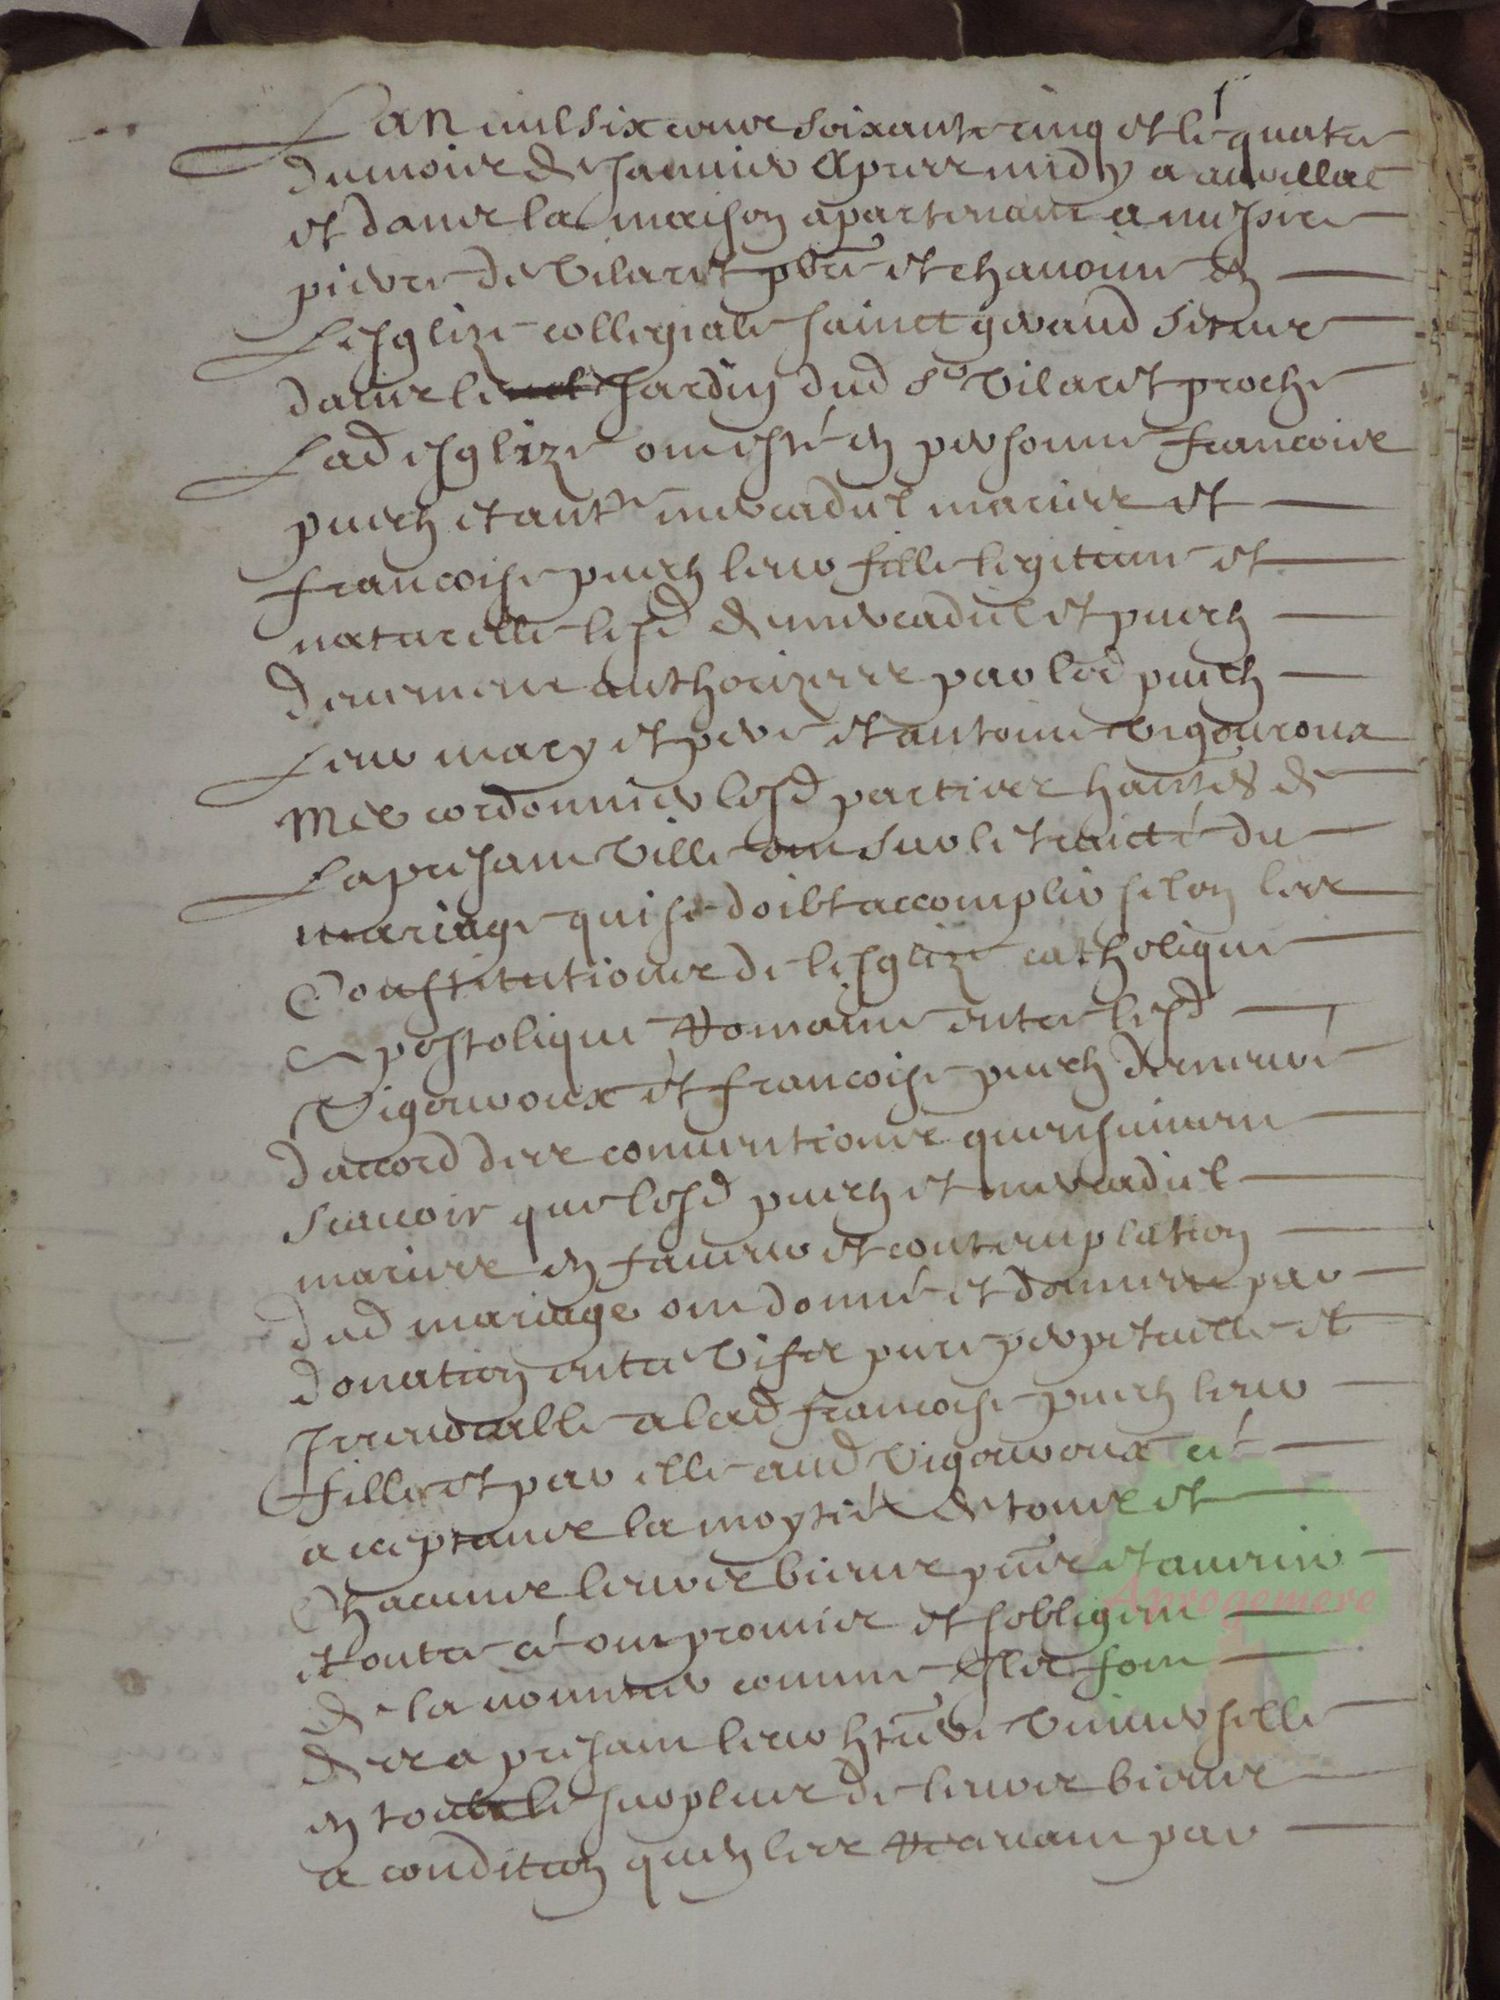 Lan mil six cens soixante cinq et le quatre
du mois de Janvier apres midy a aurillac
et dans la maison apartenant a messire
pierre de Vilaret pbre et chanoine en
Lesglize collegiale sainct geraud scitue
dans le Jardin dud sr Vilaret proche
Lad esglize ont esté en personne francois
puech et anthe mercadiel maries et
francoise puech leur fille legitime et
naturelle lesd de mercadiel et puech
deuement authorizees par led puech
Leur mary et pere et antoine Vigouroux
Me cordonnier lesd parties habtes de
La presant Ville sur le traicté du
mariage qui se doibt accomplir selon les
Constitutions de lesglize catholique
Apostolique Romaine entre lesd
Vigouroux et francoise puech demeuré
daccord des conventions quensuivent
Scavoir que lesd puech et mercadiel
maries en faveur et contemplation
dud mariage ont donné et donnent par
donation entre Vifs pure perpetuelle et
Irrevocable a lad francoise puech leur
fille et par elle aud Vigouroux ce
acceptans la moytié de tous et
Chacuns leurs biens pns et avenir
et outre ce ont promis et sobligent
de la nommer comme Ils font
des a presant leur htiere Universelle
en tout le surplus de leurs biens
a condition quen les par
Aprogemere